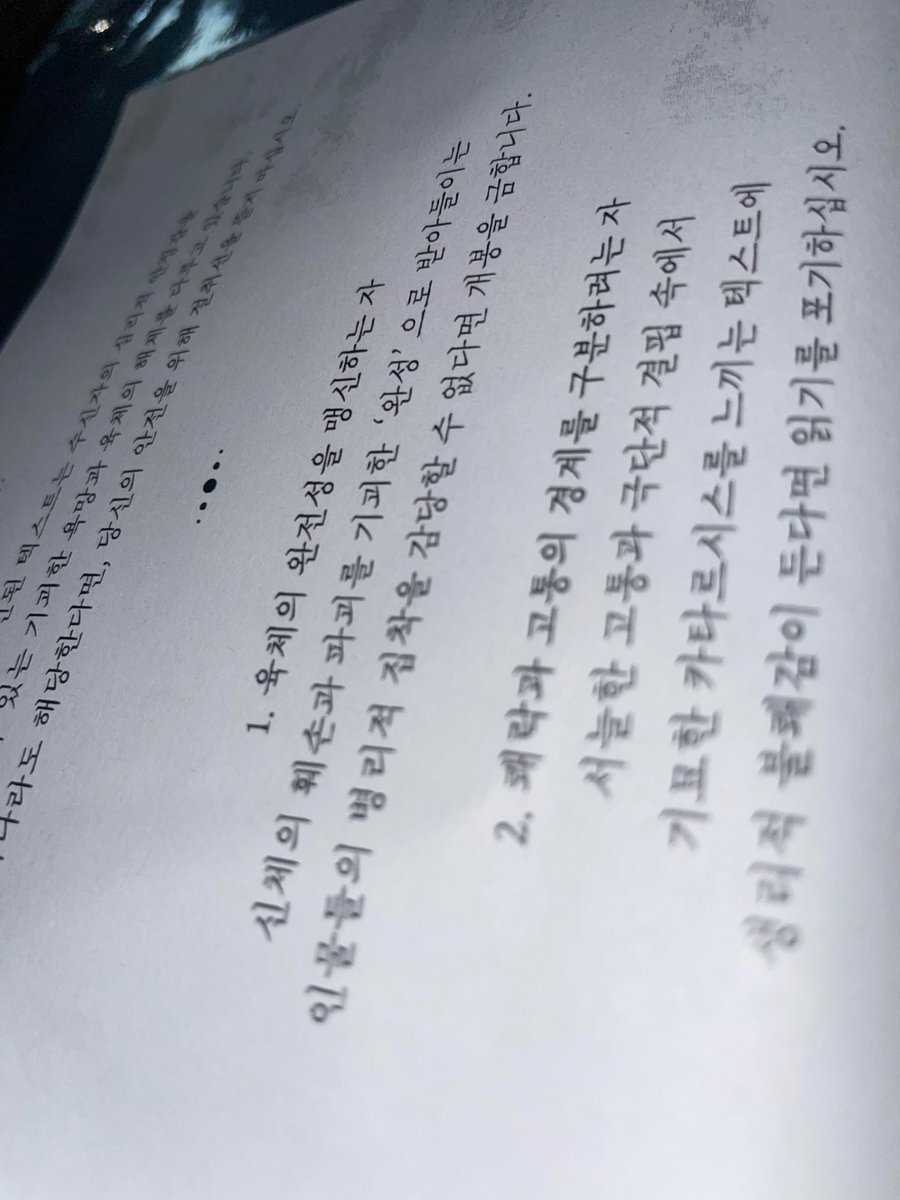 텍스트는 수신자의 심리적 안정성을
있는 기괴한 욕망과 육체의 해체를 다루고 있습니다
하나라도 해당한다면, 당신의 안전을 위해 절취선을 뜯지 마십시오
1. 육체의 완전성을 맹신하는 자
신체의 훼손과 파괴를 기괴한 ‘완성’으로 받아들이는
인물들의 병리적 집착을 감당할 수 없다면 개봉을 금합니다.
2. 쾌락과 고통의 경계를 구분하려는 자
서늘한 고통과 극단적 결핍 속에서
기묘한 카타르시스를 느끼는 텍스트에
생리적 불쾌감이 든다면 읽기를 포기하십시오.